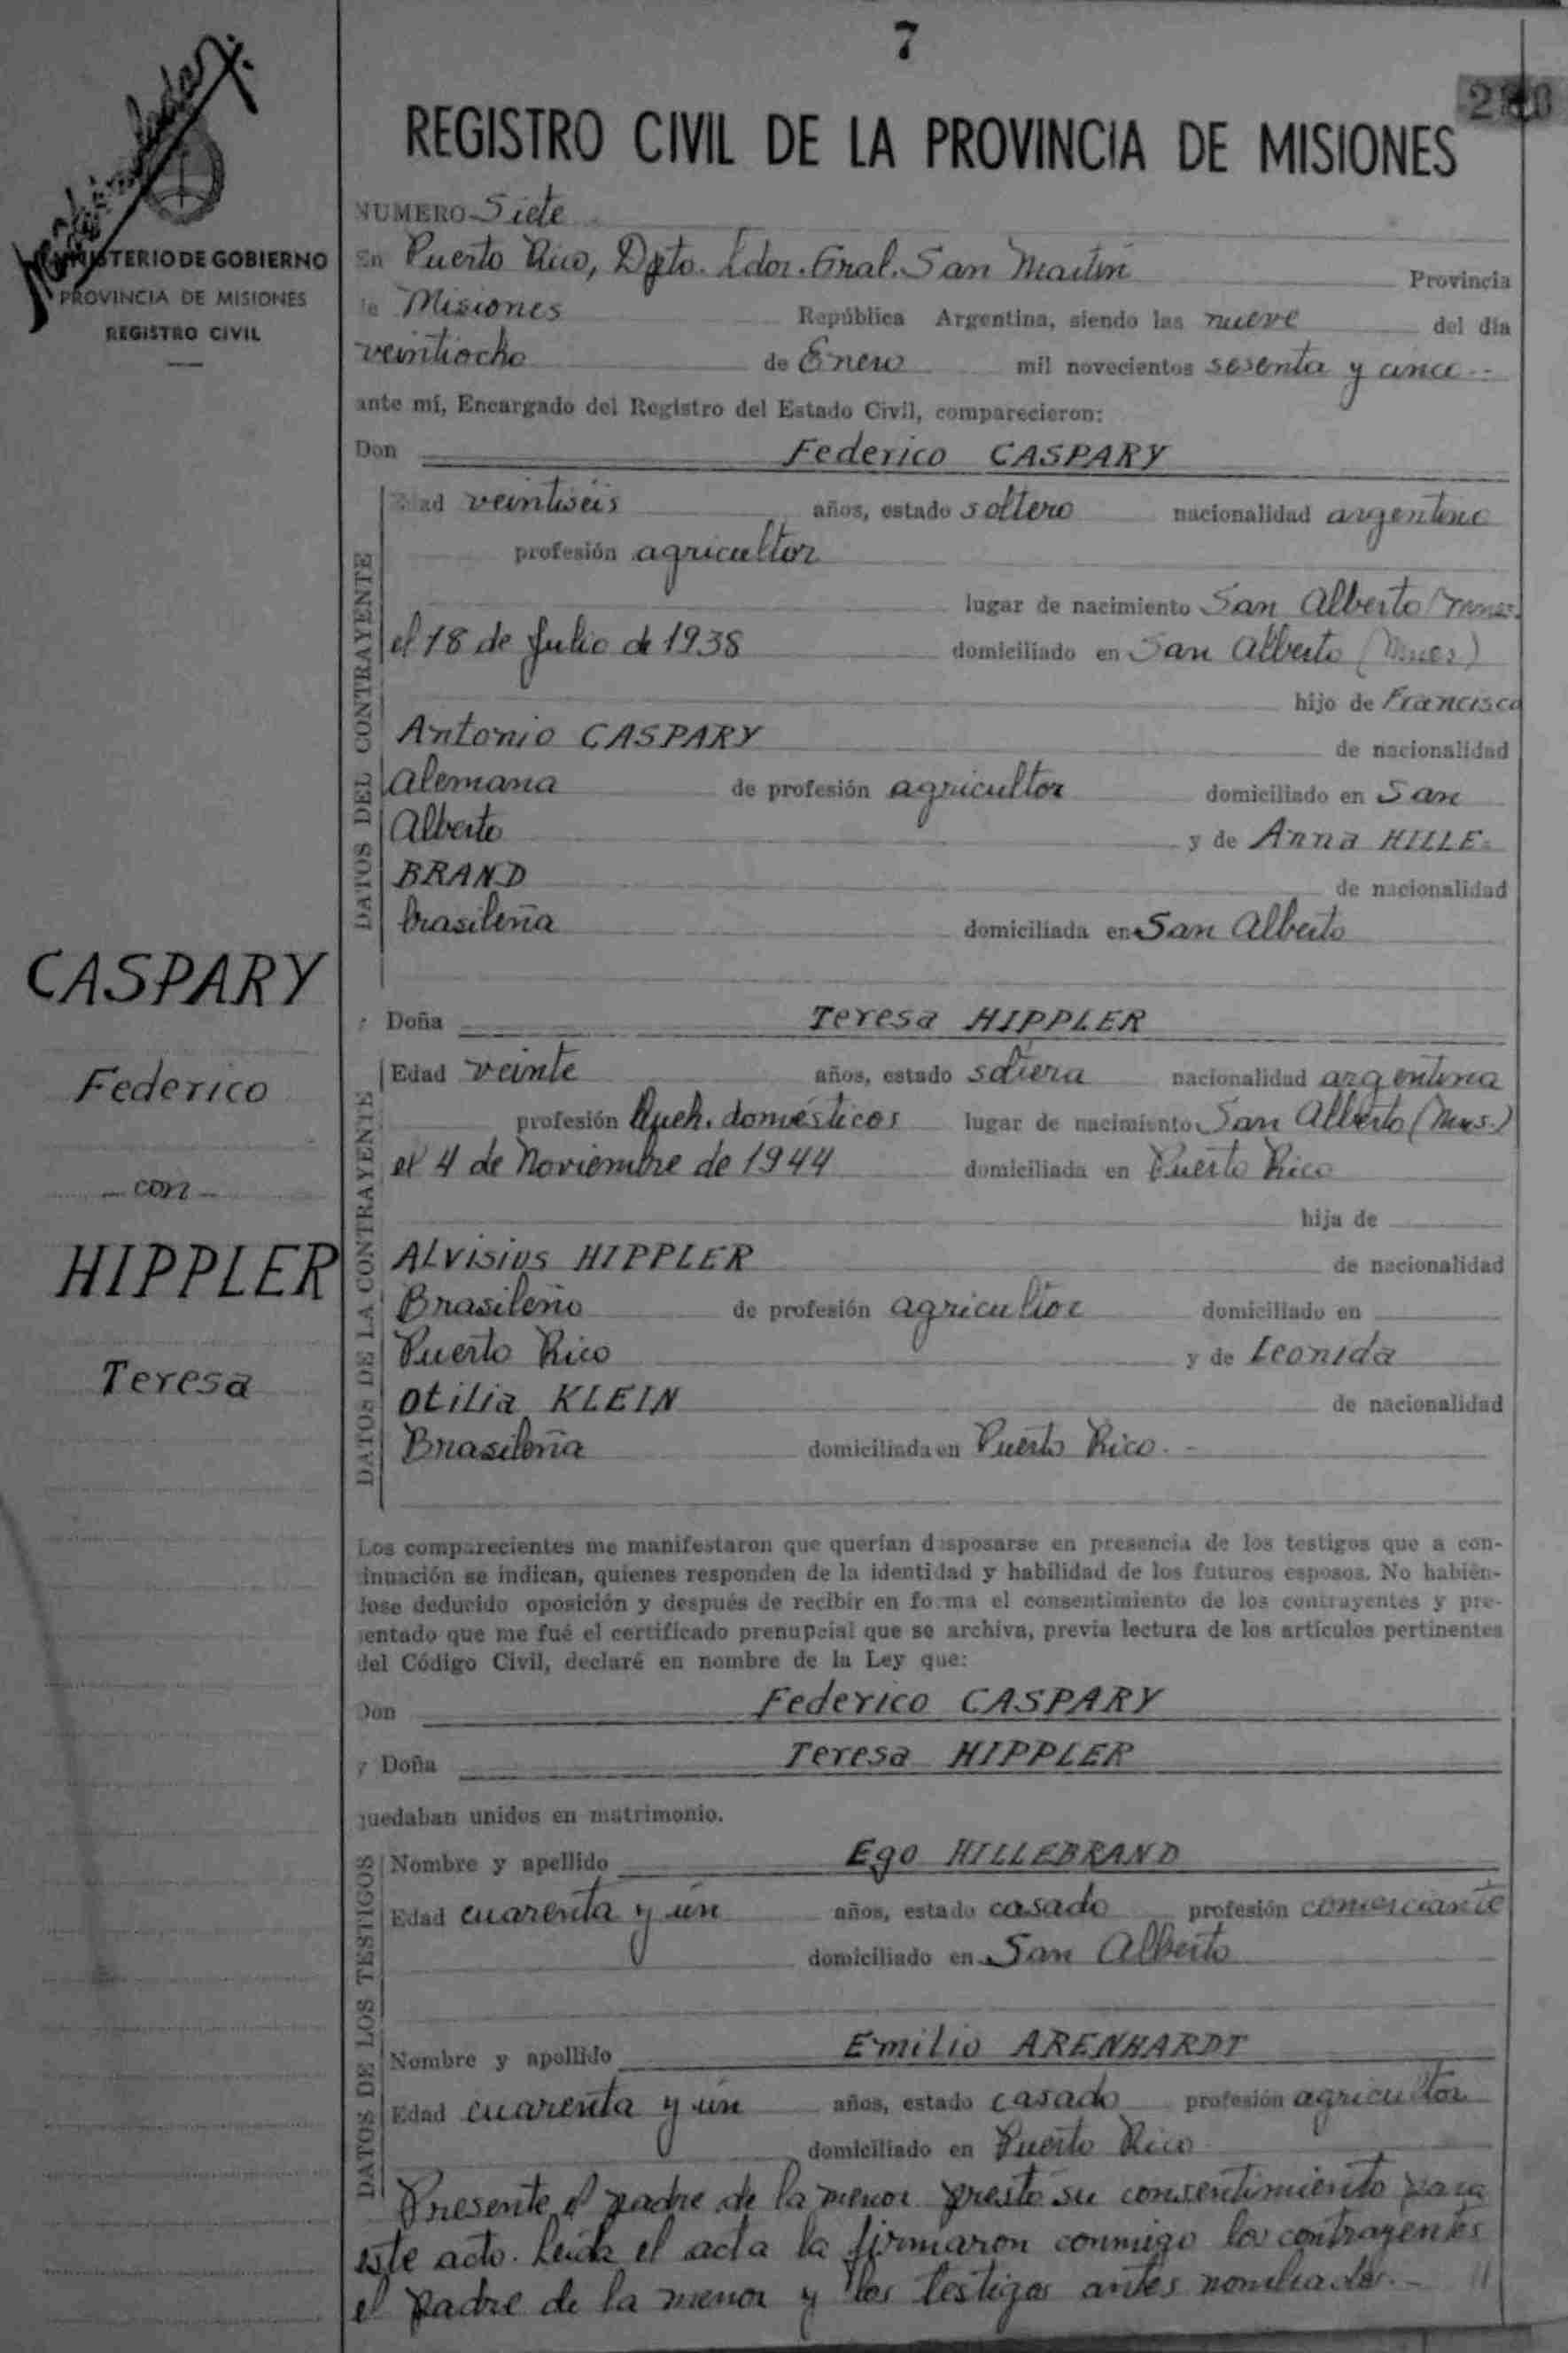 7
REGISTRO CIVIL DE LA PROVINCIA DE MISIONES
MINISTERIO DE GOBIERNO
PROVINCIA DE MISIONES
REGISTRO CIVIL
NUMERO Siete
En Puerto Rico, Dpto. Ldor. Gral. San Martín Provincia
de Misiones República Argentina, siendo las nueve del día
veintiocho de Enero mil novecientos sesenta y cinco --
ante mí, Encargado del Registro del Estado Civil, comparecieron:
Don Federico CASPARY
DATOS DEL CONTRAYENTE
Edad veintiséis años, estado soltero nacionalidad argentino
profesión agricultor
lugar de nacimiento San Alberto
el 18 de Julio de 1938 domiciliado en San Alberto
hijo de Francisco
Antonio CASPARY de nacionalidad
alemana de profesión agricultor domiciliado en San
Alberto y de Anna HILLE-
BRAND de nacionalidad
brasileña domiciliada en San Alberto
CASPARY
Federico
- con -
HIPPLER
Teresa
y Doña Teresa HIPPLER
DATOS DE LA CONTRAYENTE
Edad veinte años, estado soltera nacionalidad argentina
profesión Queh. domésticos lugar de nacimiento San Alberto (Mnes.)
el 4 de Noviembre de 1944 domiciliada en Puerto Rico
hija de
ALVISIUS HIPPLER de nacionalidad
Brasileño de profesión agricultor domiciliado en
Puerto Rico y de Leonida
Otilia KLEIN de nacionalidad
Brasileña domiciliada en Puerto Rico. -
Los comparecientes me manifestaron que querían desposarse en presencia de los testigos que a con-
tinuación se indican, quienes responden de la identidad y habilidad de los futuros esposos. No habién-
dose deducido oposición y después de recibir en forma el consentimiento de los contrayentes y pre-
sentado que me fué el certificado prenupcial que se archiva, previa lectura de los artículos pertinentes
del Código Civil, declaré en nombre de la Ley que:
Don Federico CASPARY
y Doña Teresa HIPPLER
quedaban unidos en matrimonio.
DATOS DE LOS TESTIGOS
Nombre y apellido Ego HILLEBRAND
Edad cuarenta y un años, estado casado profesión comerciante
domiciliado en San Alberto
Nombre y apellido Emilio ARENHARDT
Edad cuarenta y un años, estado casado profesión agricultor
domiciliado en Puerto Rico
Presente el padre de la menor prestó su consentimiento para
este acto. Leída el acta la firmaron conmigo los contrayentes
el padre de la menor y los testigos antes nombrados. - //